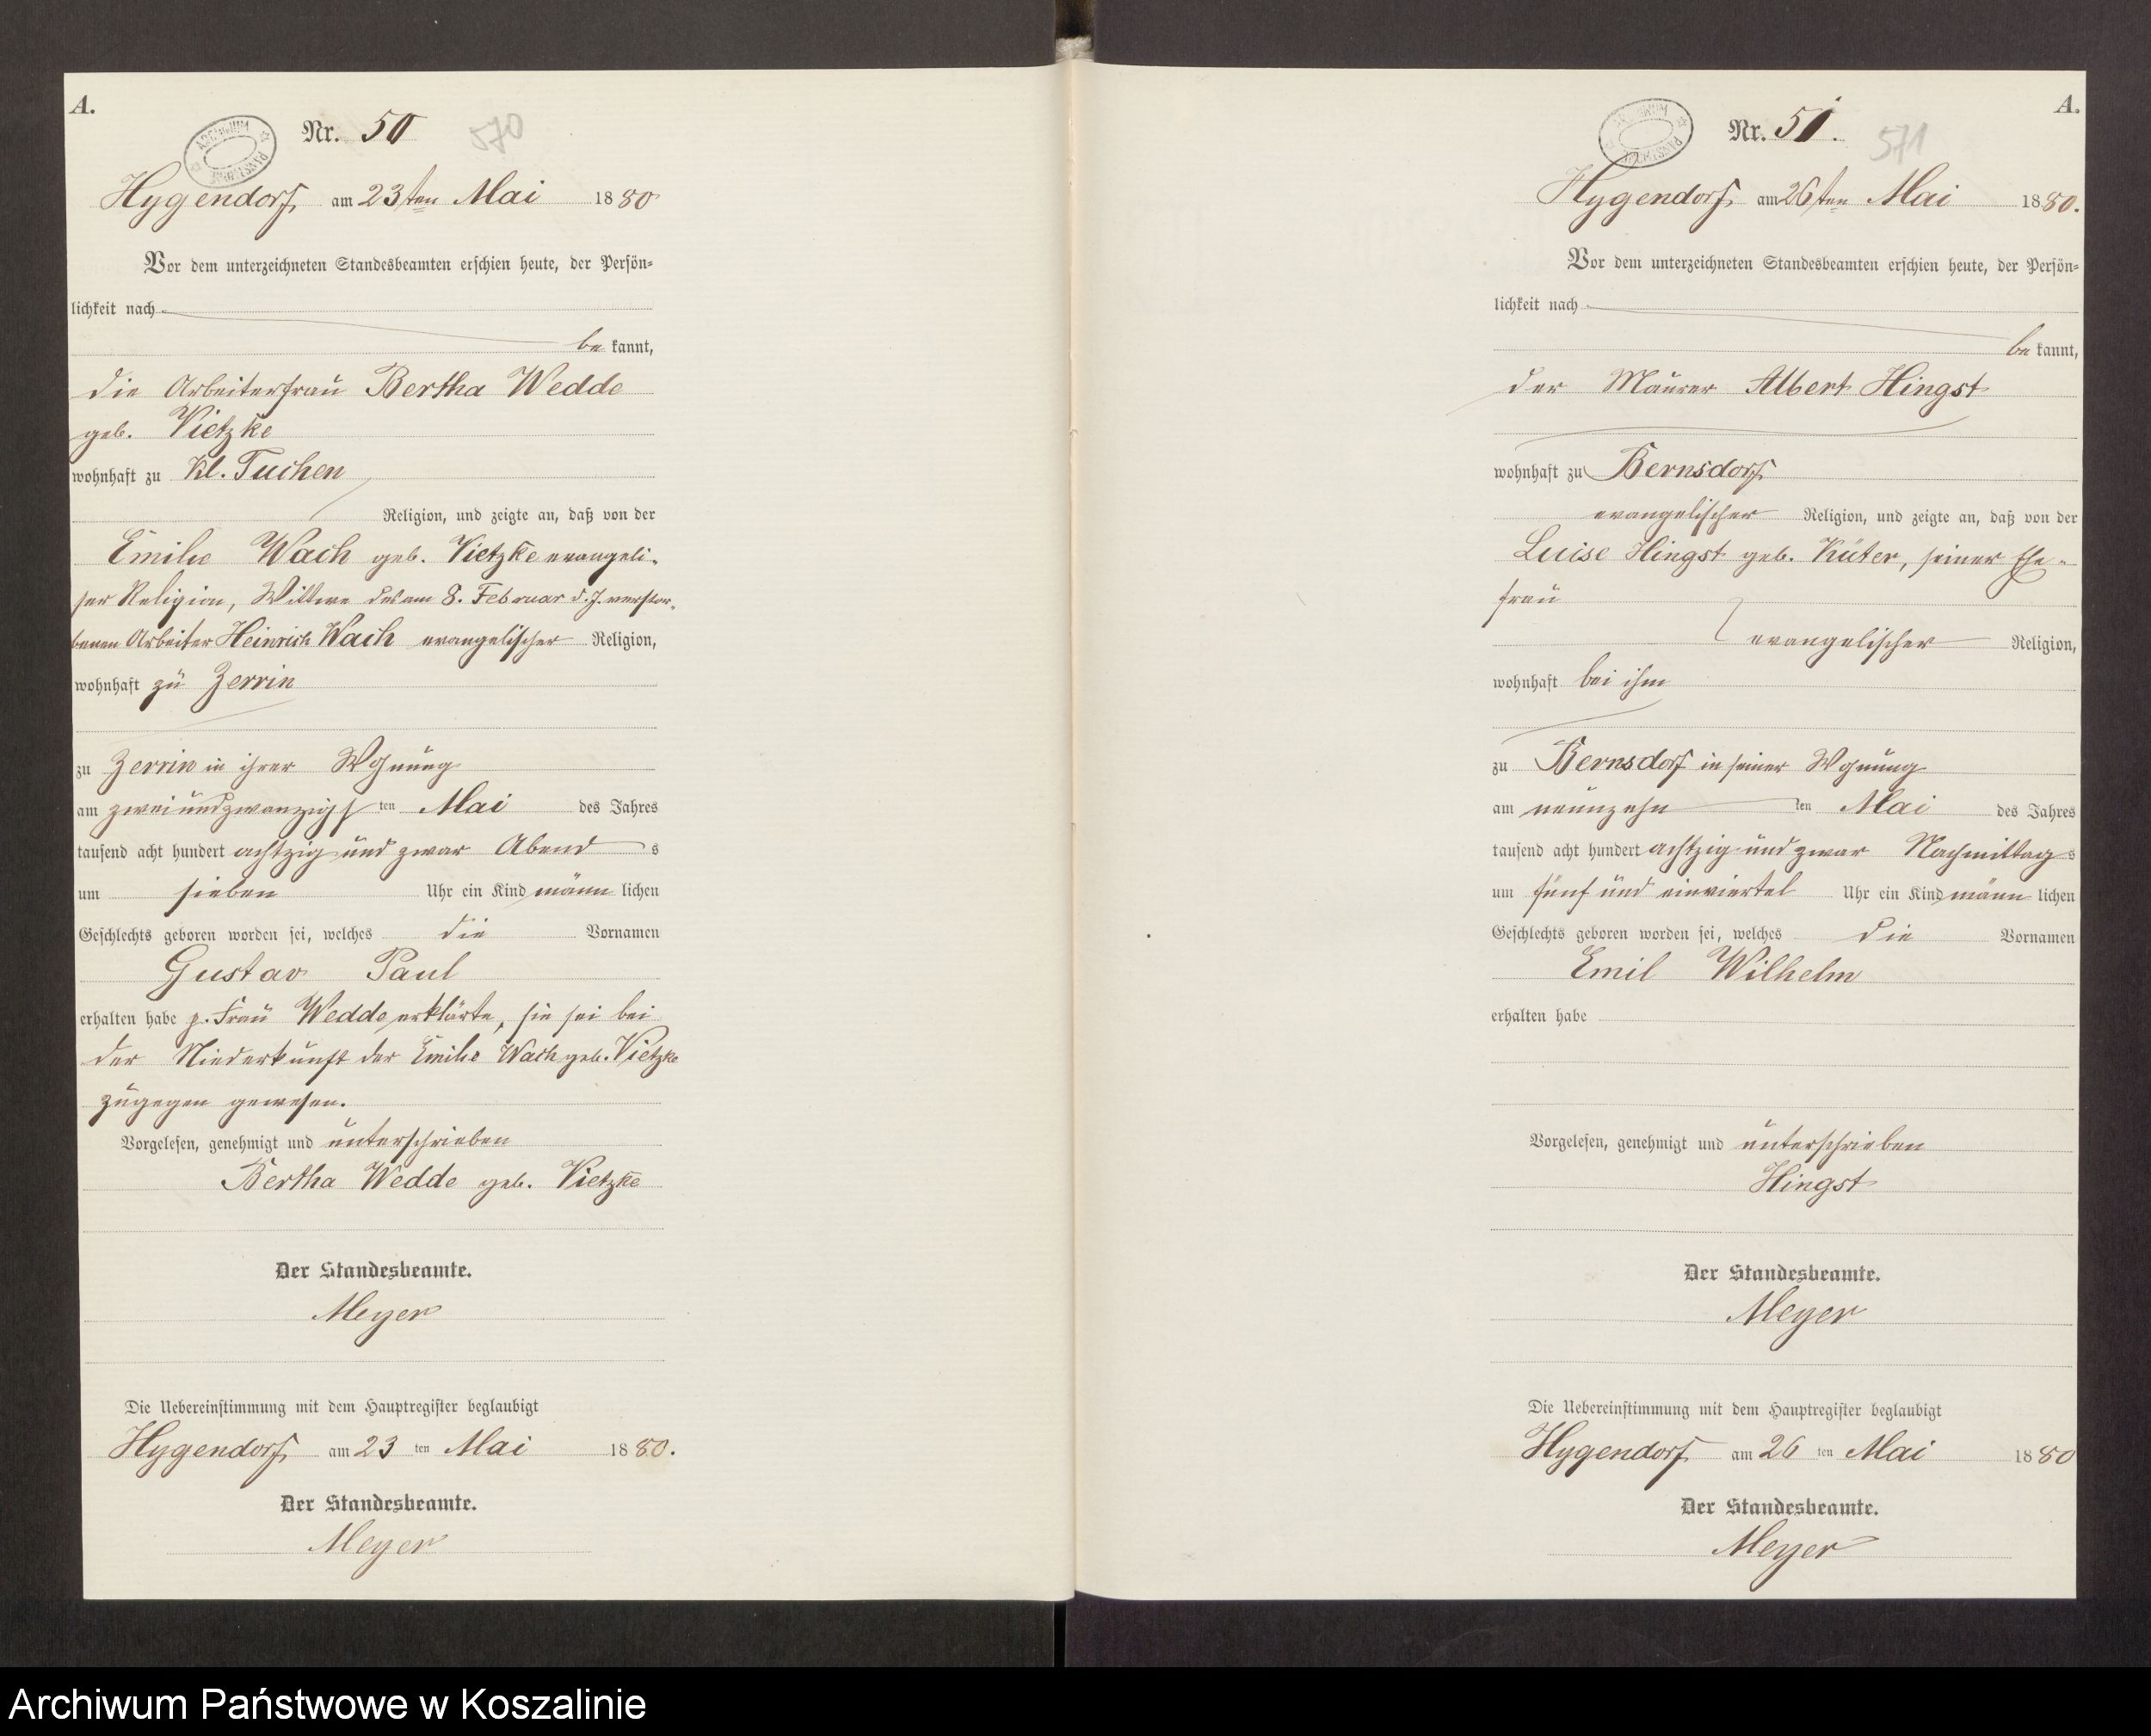 A.
Nr. 50 570
Hygendorf, am 23ten Mai 1880
Vor dem unterzeichneten Standesbeamten erschien heute, der Persön-
lichkeit nach
be kannt,
die Arbeiterfrau Bertha Wedde
geb. Vietzke
wohnhaft zu Kl. Tuchen
Religion, und zeigte an, daß von der
Emilie Wach geb. Vietzke evangeli-
scher Religion, Wittwe des am 8. Februar d. J. verstor-
benen Arbeiter Heinrich Wach evangelischer Religion,
wohnhaft zu Zerrin
zu Zerrin in ihrer Wohnung
am zweiundzwanzigsten Mai des Jahres
tausend acht hundert achtzig und zwar Abends
um sieben Uhr ein Kind männlichen
Geschlechts geboren worden sei, welches die Vornamen
Gustav Paul
erhalten habe p. Frau Wedde erklärte, sie sei bei
der Niederkunft der Emilie Wach geb. Vietzke
zugegen gewesen.
Vorgelesen, genehmigt und unterschrieben
Bertha Wedde geb. Vietzke
Der Standesbeamte.
Meyer
Die Uebereinstimmung mit dem Hauptregister beglaubigt
Hygendorf, am 23 ten Mai 1880.
Der Standesbeamte.
Meyer
A.
Nr. 51. 571
Hygendorf, am 26ten Mai 1880.
Vor dem unterzeichneten Standesbeamten erschien heute, der Persön-
lichkeit nach
be kannt,
der Maurer Albert Hingst
wohnhaft zu Bernsdorf
evangelischer Religion, und zeigte an, daß von der
Luise Hingst geb. Küter, seiner Ehe-
frau
evangelischer Religion,
wohnhaft bei ihm
zu Bernsdorf in seiner Wohnung
am neunzehn ten Mai des Jahres
tausend acht hundert achtzig und zwar Nachmittags
um fünf und einviertel Uhr ein Kind männlichen
Geschlechts geboren worden sei, welches die Vornamen
Emil Wilhelm
erhalten habe
Vorgelesen, genehmigt und unterschrieben
Hingst
Der Standesbeamte.
Meyer
Die Uebereinstimmung mit dem Hauptregister beglaubigt
Hygendorf am 26 ten Mai 1880
Der Standesbeamte.
Meyer
Archiwum Państwowe w Koszalinie